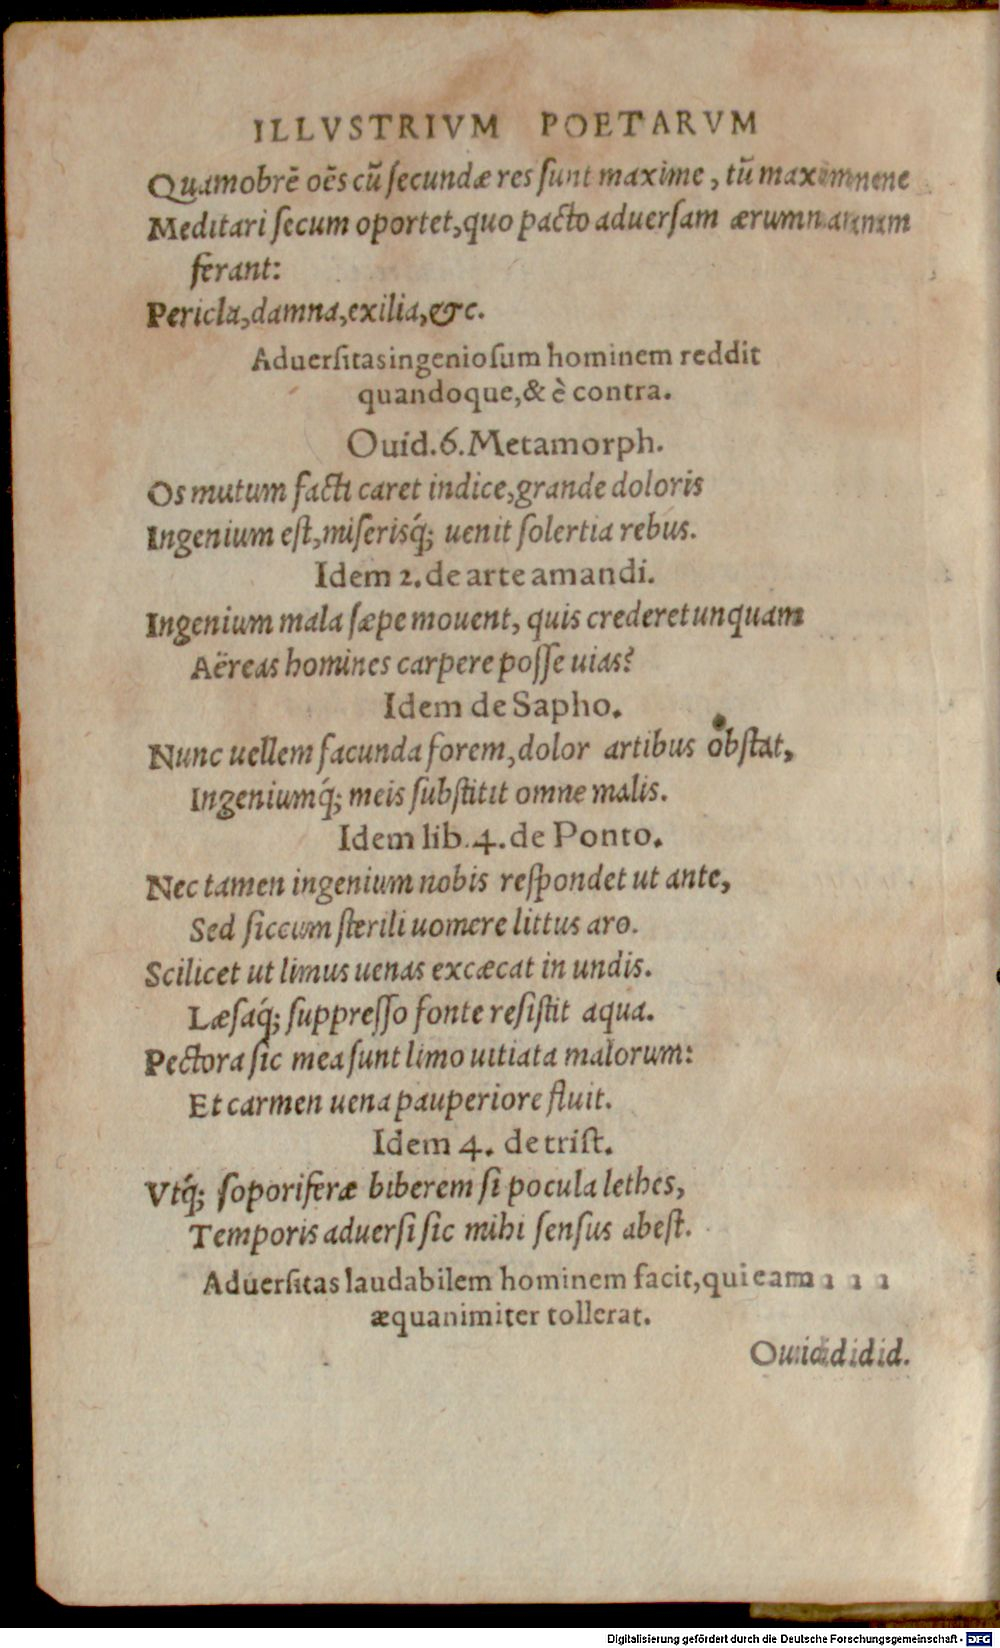 ILLVSTRIVM POETARVM
Quamobrē oēs cū ſecundæ res ſunt maxime, tū maxime
Meditari ſecum oportet, quo pacto aduerſam ærumnam
ferant:
Pericla, damna, exilia, &c.
Aduerſitas ingenioſum hominem reddit
quandoque, & è contra.
Ouid. 6. Metamorph.
Os mutum facti caret indice, grande doloris
Ingenium eſt, miſerisq́; uenit ſolertia rebus.
Idem 2. de arte amandi.
Ingenium mala ſæpe mouent, quis crederet unquam
Aëreas homines carpere poſſe uias?
Idem de Sapho.
Nunc uellem facunda forem, dolor artibus obſtat,
Ingeniumq́; meis ſubſtitit omne malis.
Idem lib. 4. de Ponto.
Nec tamen ingenium nobis reſpondet ut ante,
Sed ſiccum ſterili uomere littus aro.
Scilicet ut limus uenas excæcat in undis.
Læſaq́; ſuppreſſo fonte reſiſtit aqua.
Pectora ſic mea ſunt limo uitiata malorum:
Et carmen uena pauperiore fluit.
Idem 4. de triſt.
Vtq́; ſoporiferæ biberem ſi pocula lethes,
Temporis aduerſi ſic mihi ſenſus abeſt.
Aduerſitas laudabilem hominem facit, qui eam
æquanimiter tollerat.
Ouid.
Digitalisierung gefördert durch die Deutsche Forschungsgemeinschaft - DFG